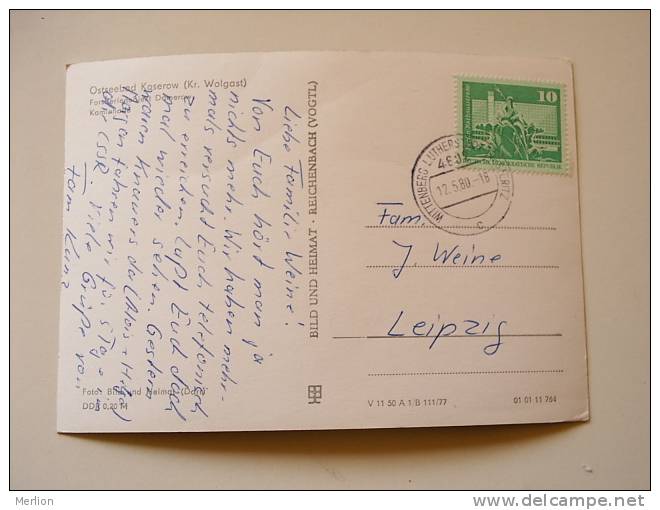 Ostseebad Koserow (Kr. Wolgast)
Liebe Familie Weine!
Von Euch hört man ja
nichts mehr. Wir haben mehr-
mals versucht Euch telefonisch
zu erreichen. Laßt Euch doch
mal wieder sehen. Gestern
waren Knauers da
fahren wir für 5 Tage in
die CSSR. Viele Grüße von
Fam. Kunz
Foto: Bild und Heimat
DDR 0,20 M
BILD UND HEIMAT · REICHENBACH (VOGTL)
10
DEUTSCHE DEMOKRATISCHE REPUBLIK
WITTENBERG LUTHERST
12.5.80.-18
c
Fam.
J. Weine
Leipzig
V 11 50 A 1 B 111/77
01 01 11 764
Merlion
www.delcampe.net